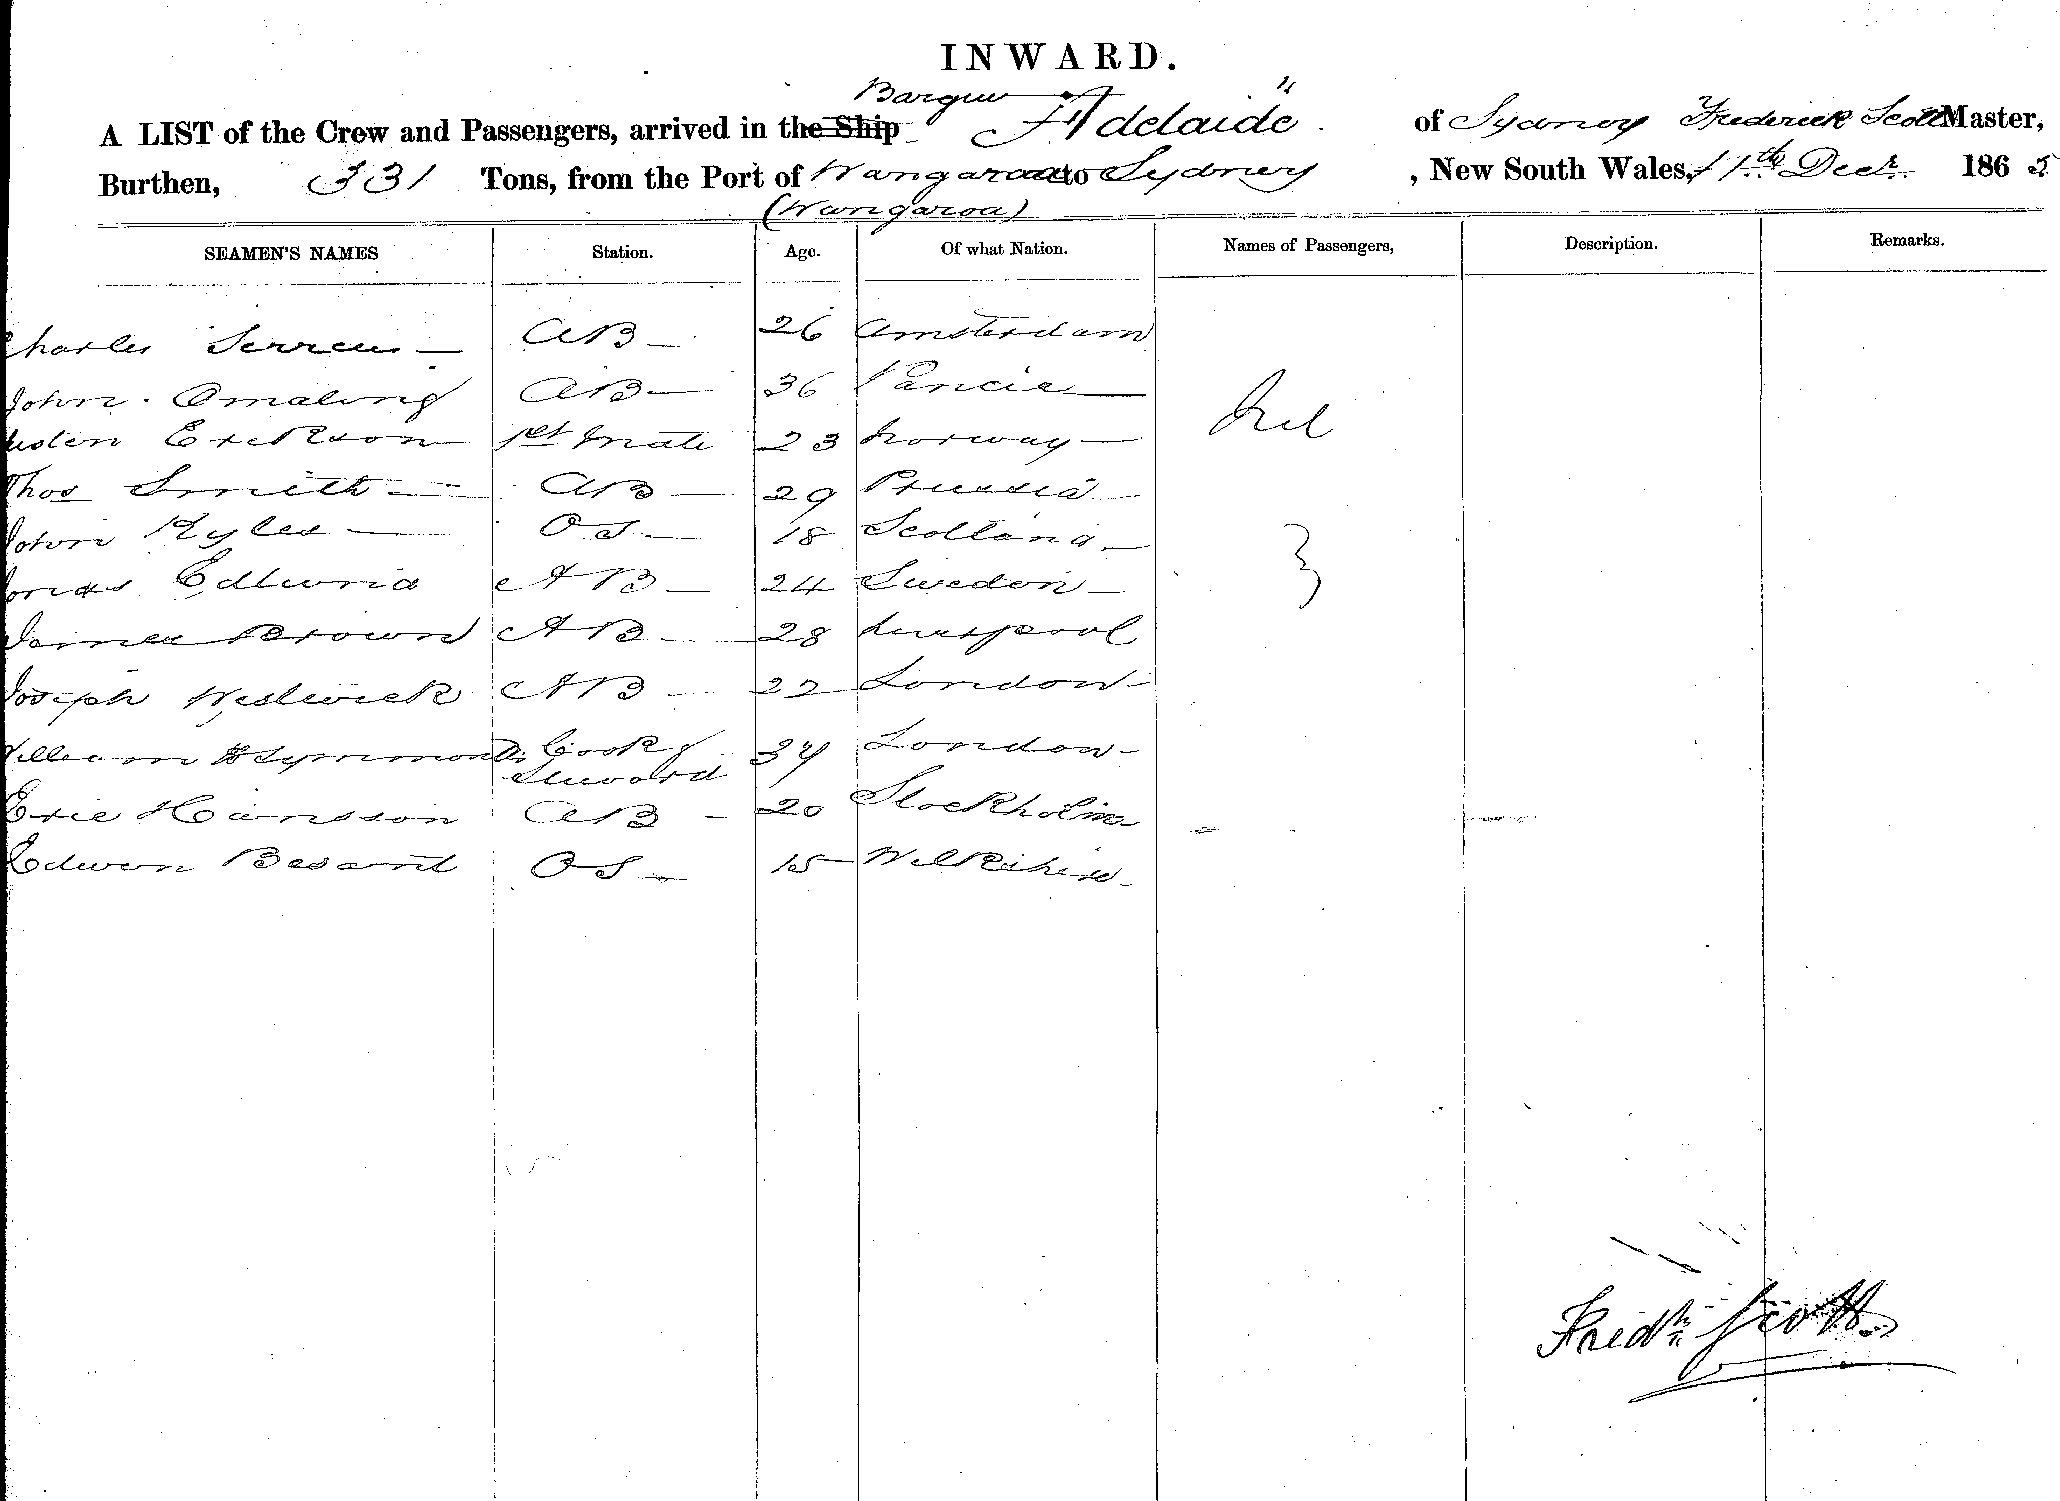 INWARD.
Barque "Adelaide"
A LIST of the Crew and Passengers, arrived in the Ship of Sydney Frederick Scott Master,
Burthen, 331 Tons, from the Port of Wangaroa to Sydney , New South Wales, 11th Decr. 1865
(Wangaroa)
SEAMEN'S NAMES Station. Age. Of what Nation. Names of Passengers, Description. Remarks.
Charles AB 26 Amsterdam
John AB 36 Nil
Erickson 1st Mate 23 Norway
Thos Smith AB 29 Prussia
John Kyles OS 18 Scotland
Edlund AB 24 Sweden
James Brown AB 28 Liverpool
Joseph Westwick AB 22 London
William H Symmonds Cook & Steward 34 London
Eric Hansson AB 20 Stockholm
Edwin Besant OS 15 Wilkshire
Fredk Scott